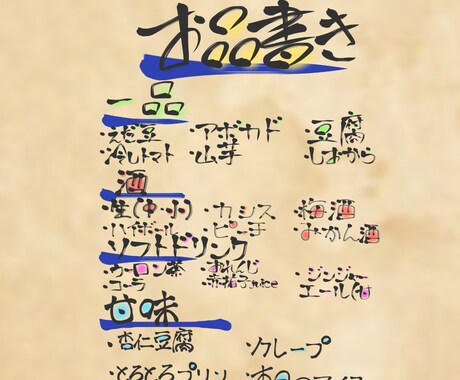 お品書き
一品
・えだ豆 ・アボカド ・豆腐
・冷しトマト ・山芋 ・しおから
酒
・生(中・小) ・カシス ・梅酒
・ハイボール ・ピーチ ・みかん酒
ソフトドリンク
・ウーロン茶 ・おれんじ ・ジンジャー
・コーラ ・赤柚子juice エール(甘
甘味
・杏仁豆腐 ・クレープ
・とろとろプリン ・本日のアイス